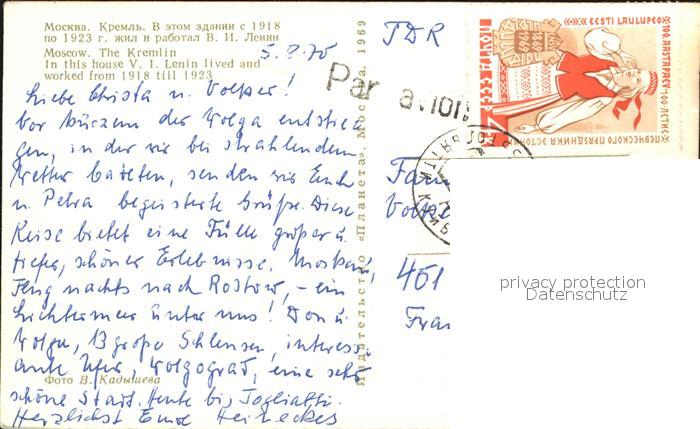 Москва. Кремль. В этом здании с 1918
по 1923 г. жил и работал В. И. Ленин
Moscow. The Kremlin
In this house V. I. Lenin lived and
worked from 1918 till 1923
5.8.70
Liebe Christa u. Volker!
Vor kurzem der Wolga entstie-
gen, in der wir bei strahlendem
Wetter badeten, senden wir Euch
u. Petra begeisterte Grüße. Diese
Reise bietet eine Fülle großer u.
tiefer, schöner Erlebnisse. Moskau,
Flug nachts nach Rostow, – ein
Lichtermeer unter uns! Don u.
Wolga, 13 große Schleusen, interess-
ante Ufer, Wolgograd, eine sehr
schöne Stadt. Heute bis Togliatti.
Herzlichst Eure Heineckes
Фото В. Кадышева
Издательство «Планета» Москва. 1969
TDR
Par avion
EESTI LAULUPEO 100. AASTAPÄEV
100-ЛЕТИЕ ПЕВЧЕСКОГО ПРАЗДНИКА ЭСТОНИИ
ПОЧТА СССР
1869
1969
4
Fam
Volke
401
Fran
privacy protection
Datenschutz